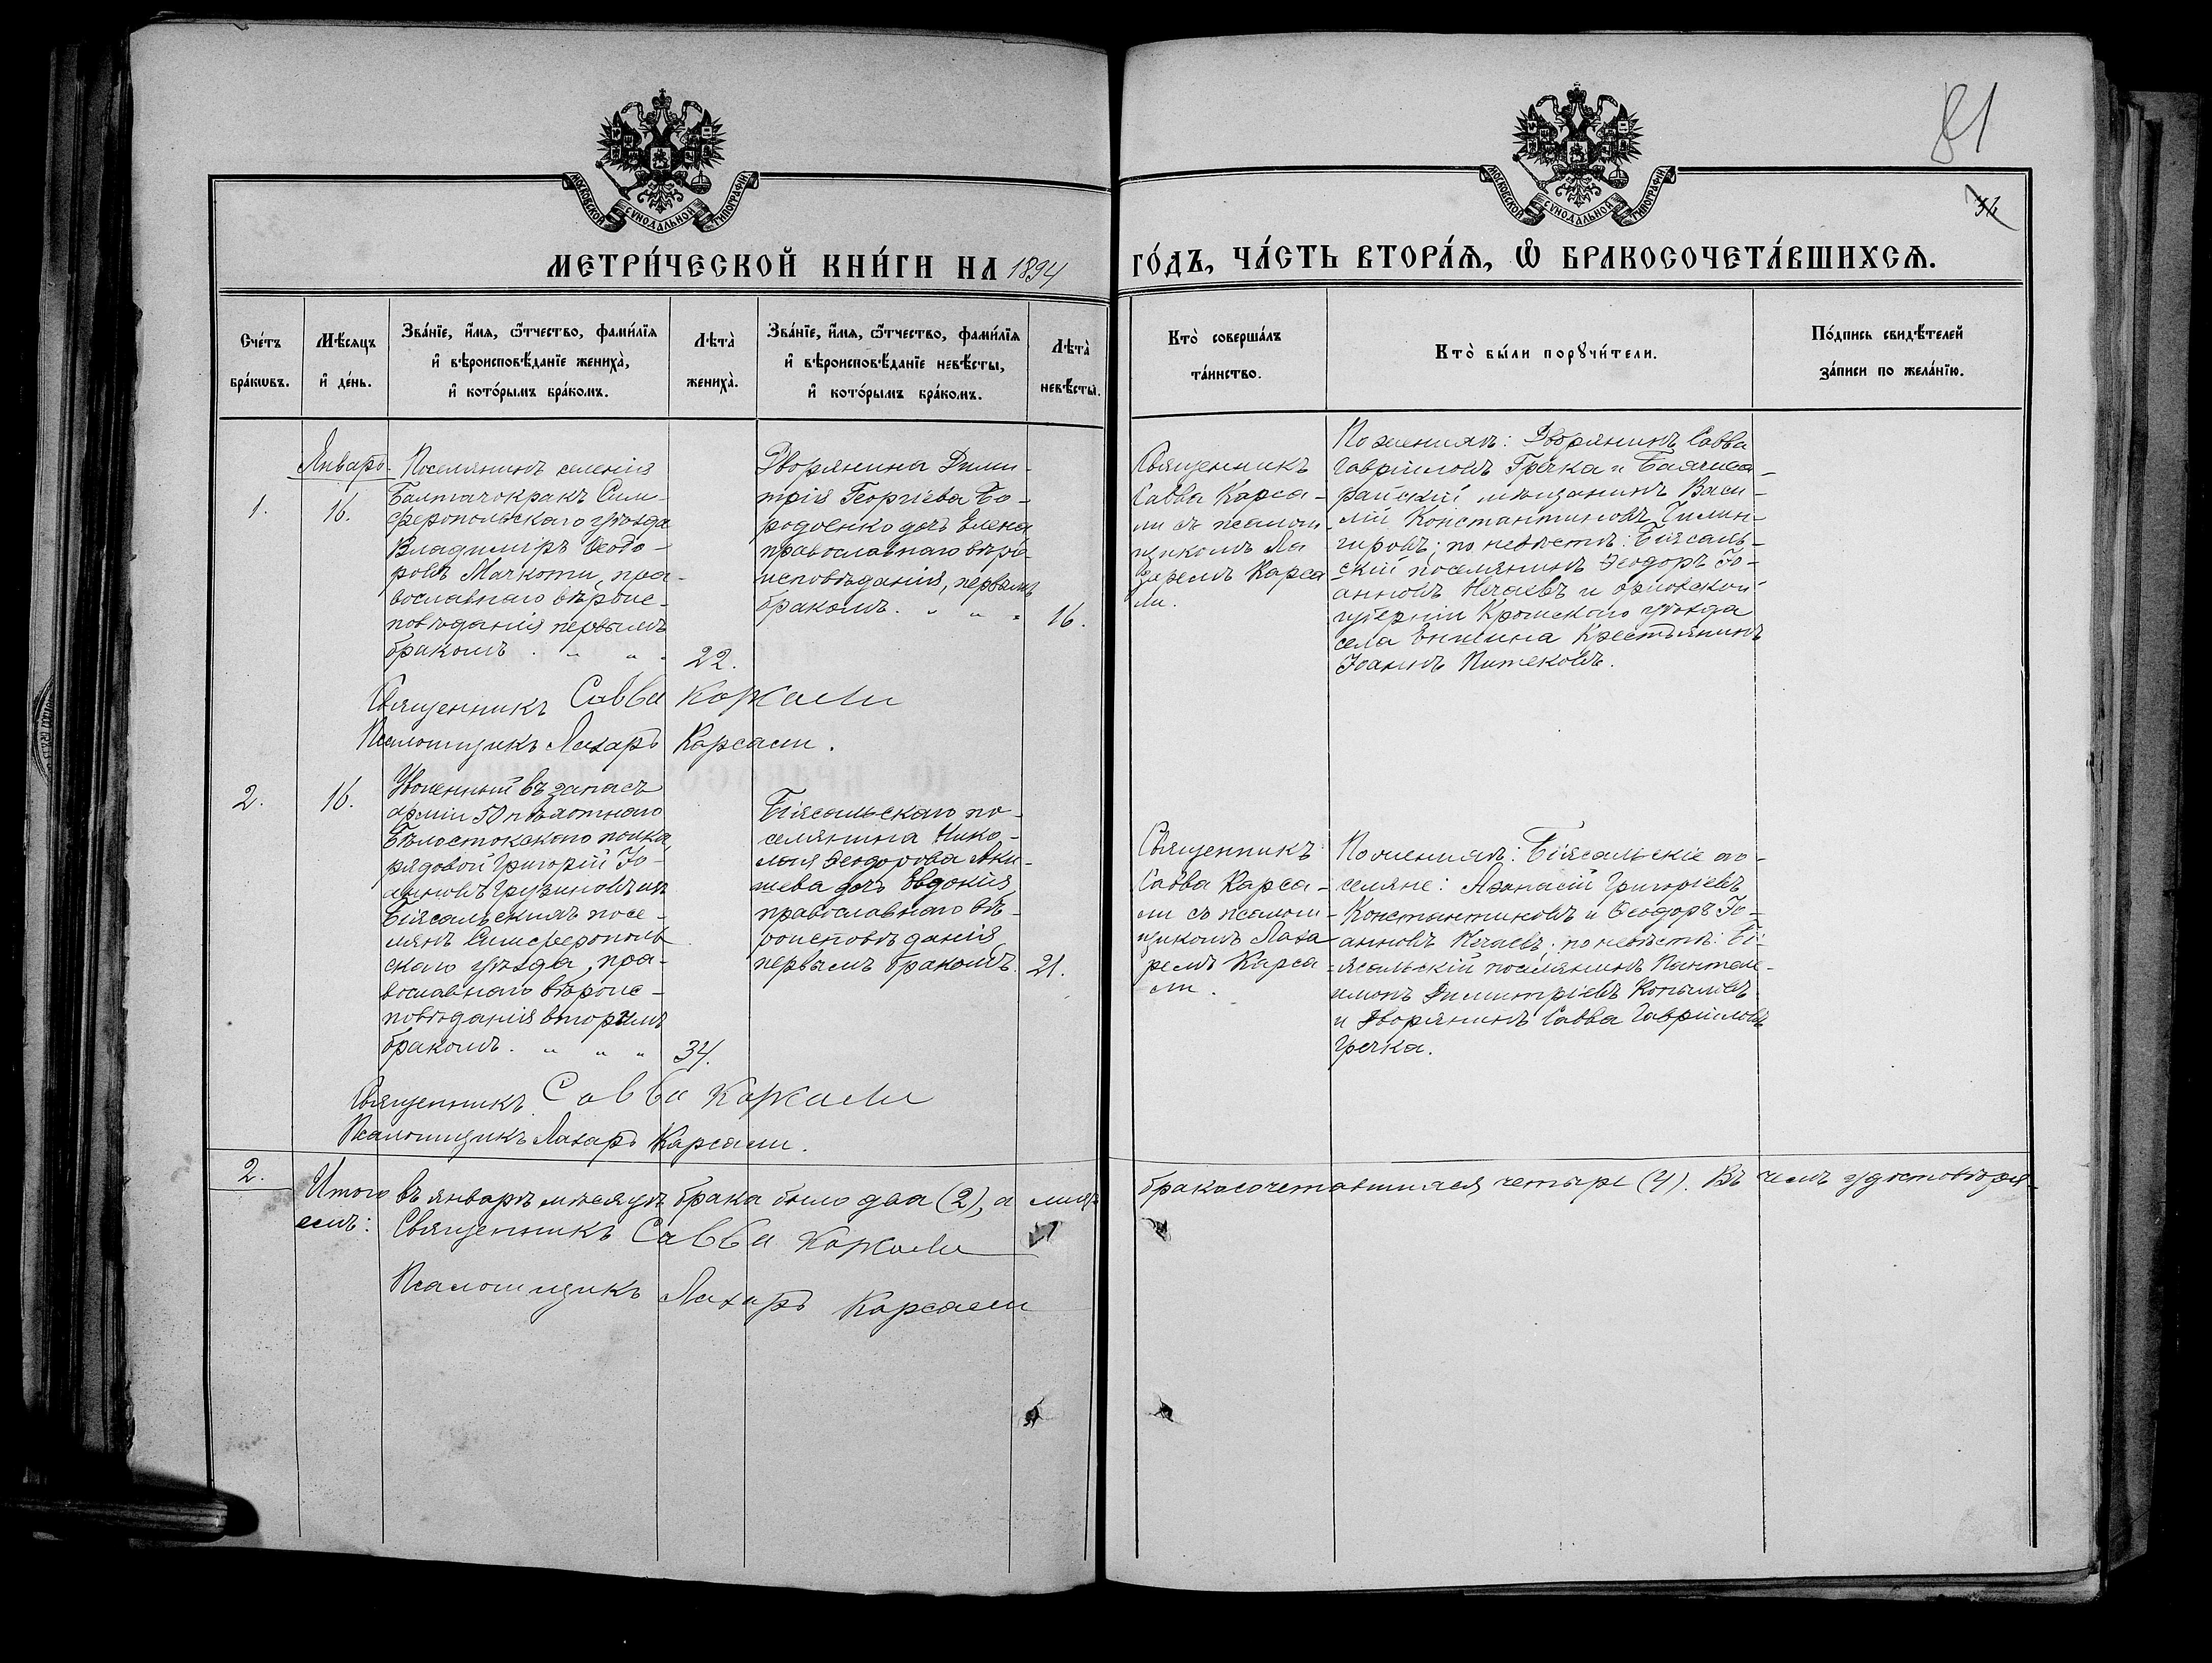 81
МОСКОВСКОЙ СѴНОДАЛЬНОЙ ТИПОГРАФІИ
МОСКОВСКОЙ СѴНОДАЛЬНОЙ ТИПОГРАФІИ
МЕТРИ́ЧЕСКОЙ КНИ́ГИ НА 1894
ГО́ДЪ, ЧА́СТЬ ВТОРА́Ѧ, Ѽ БРАКОСОЧЕТА́ВШИХСѦ.
Сче́тъ
бра́кѡвъ.
Мѣ́сяцъ
и҆ де́нь.
Зва́нїе, и҆́мя, ѻ҆́тчество, фами́лїя
и҆ вѣроисповѣ́данїе жениха̀,
и҆ кото́рымъ бра́комъ.
Лѣта̀
жениха̀.
Зва́нїе, и҆́мя, ѻ҆́тчество, фами́лїя
и҆ вѣроисповѣ́данїе невѣ́сты,
и҆ кото́рымъ бра́комъ.
Лѣта̀
невѣ́сты.
Кто̀ соверша́лъ
та́инство.
Кто̀ бы́ли порꙋчи́тели.
По́дпись свидѣ́телей
за́писи по жела́нїю.
Январь
1.
16.
Поселянинъ селенія
Балтачокракъ Сим-
феропольскаго уѣзда
Владиміръ Ѳеодо-
ровъ Мачкоти, пра-
вославнаго вѣроис-
повѣданія первымъ
бракомъ . „ „ .
22.
Дворянина Дими-
трія Георгіева Бо-
родоенко дочь Елена
православнаго вѣро
исповѣданія, первымъ
бракомъ. „ „ „
16.
Священникъ
Савва Карса-
ли съ псалом-
щикомъ Ла
заремъ Карса
ли.
По женихѣ: Дворянинъ Савва
Гавріиловъ Гречка и Бахчиса-
райскій мѣщанинъ Васи-
лій Константиновъ Чилин-
гировъ; по невѣстѣ: Біясаль-
скій поселянинъ Ѳеодоръ Іо-
анновъ Нечаевъ и орловской
губерніи Кромскаго уѣзда
села крестьянинъ
Іоаннъ
Священникъ Савва Карсали
Псаломщикъ Лазарь Карсали.
2.
16.
Уволенный въ запасъ
арміи 50 пѣхотнаго
Бѣлостокскаго полка
рядовой Григорій Іо-
анновъ Грузиновъ изъ
Біясальскихъ посе-
лянъ Симферополь
скаго уѣзда, пра-
вославнаго вѣроис-
повѣданія вторымъ
бракомъ. „ „ „
34.
Біясальскаго по-
селянина Нико-
лая Ѳеодорова Аки-
шева дочь Евдокія
православнаго вѣ-
роисповѣданія
первымъ бракомъ.
21.
Священникъ
Савва Карса-
ли съ псалом-
щикомъ Лаза
ремъ Карса
ли.
По женихѣ: Біясальскіе по-
селяне: Аѳанасій Григоріевъ
Константиновъ и Ѳеодоръ Іо-
анновъ Нечаевъ; по невѣстѣ: Бі-
ясальскій поселянинъ Пантеле-
имонъ Димитріевъ Копыловъ
и дворянинъ Савва Гавріиловъ
Гречка.
Священникъ Савва Карсали
Псаломщикъ Лазарь Карсали.
2.
Итого въ январѣ мѣсяцѣ брака было два (2), а лицъ бракосочетавшихся четыре (4). Въ чемъ удостовѣря-
емъ: Священникъ Савва Карсали
Псаломщикъ Лазарь Карсали